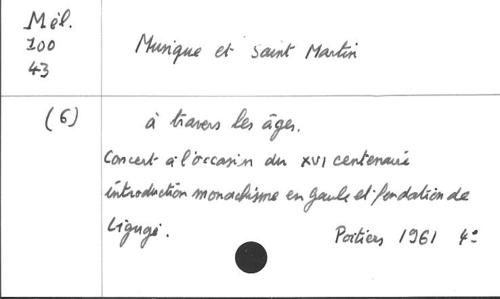 Mél.
100
43
Musique et Saint Martin
(6)
à travers les âges.
Concert à l'occasion du XVI centenaire
introduction monachisme en Gaule et fondation de
Ligugé.
Poitiers 1961 4°